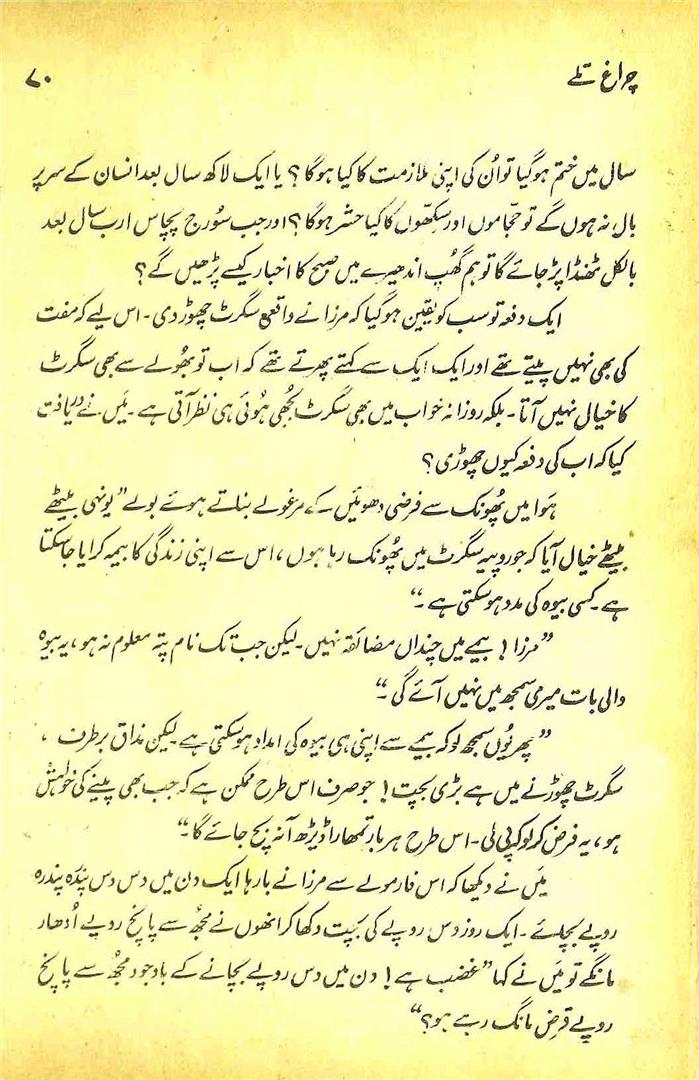 چراغ تلے ۷۰
سال میں ختم ہوگیا تو اُن کی اپنی ملازمت کا کیا ہوگا؟ یا ایک لاکھ سال بعد انسان کے سر پر
بال نہ ہوں گے تو حجّاموں اور سکھّوں کا کیا حشر ہوگا؟ اور جب سُورج پچاس ارب سال بعد
بالکل ٹھنڈا پڑ جائے گا تو ہم گھُپ اندھیرے میں صبح کا اخبار کیسے پڑھیں گے؟
ایک دفعہ تو سب کو یقین ہوگیا کہ مرزا نے واقعی سگرٹ چھوڑ دی۔ اس لیے کہ مفت
کی بھی نہیں پیتے تھے اور ایک ایک سے کہتے پھرتے تھے کہ اب تو بھُولے سے بھی سگرٹ
کا خیال نہیں آتا۔ بلکہ روزانہ خواب میں بھی سگرٹ بُجھی ہُوئی ہی نظر آتی ہے۔ مَیں نے دریافت
کیا کہ اب کی دفعہ کیوں چھوڑی؟
ہَوا میں پھُونک سے فرضی دھوئیں کے مرغولے بناتے ہوئے بولے ”یونہی بیٹھے
بیٹھے خیال آیا کہ جو روپیہ سگرٹ میں پھُونک رہا ہوں، اس سے اپنی زندگی کا بیمہ کرایا جاسکتا
ہے۔ کسی بیوہ کی مدد ہوسکتی ہے۔“
”مرزا! بیمے میں چنداں مضائقہ نہیں۔ لیکن جب تک نام پتہ معلوم نہ ہو، یہ بیوہ
والی بات میری سمجھ میں نہیں آئے گی۔“
”پھر یُوں سمجھ لو کہ بیمے سے اپنی ہی بیوہ کی امداد ہوسکتی ہے۔ لیکن مذاق برطرف،
سگرٹ چھوڑنے میں ہے بڑی بچت! جو صرف اس طرح ممکن ہے کہ جب بھی پینے کی خواہش
ہو، یہ فرض کر لو کہ پی لی۔ اس طرح ہر بار تمھارا ڈیڑھ آنہ بچ جائے گا۔“
مَیں نے دیکھا کہ اس فارمولے سے مرزا نے بارہا ایک دن میں دس دس پندرہ پندرہ
روپے بچائے۔ ایک روز دس روپے کی بچت دکھا کر انھوں نے مجھُ سے پانچ روپے اُدھار
مانگے تو مَیں نے کہا ”غضب ہے! دن میں دس روپے بچانے کے باوجود مجھُ سے پانچ
روپے قرض مانگ رہے ہو؟“